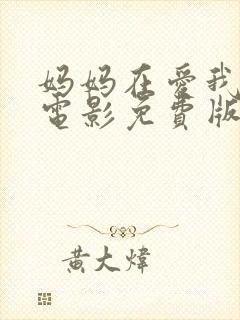 妈妈在爱我
電影免費版
黄大煒